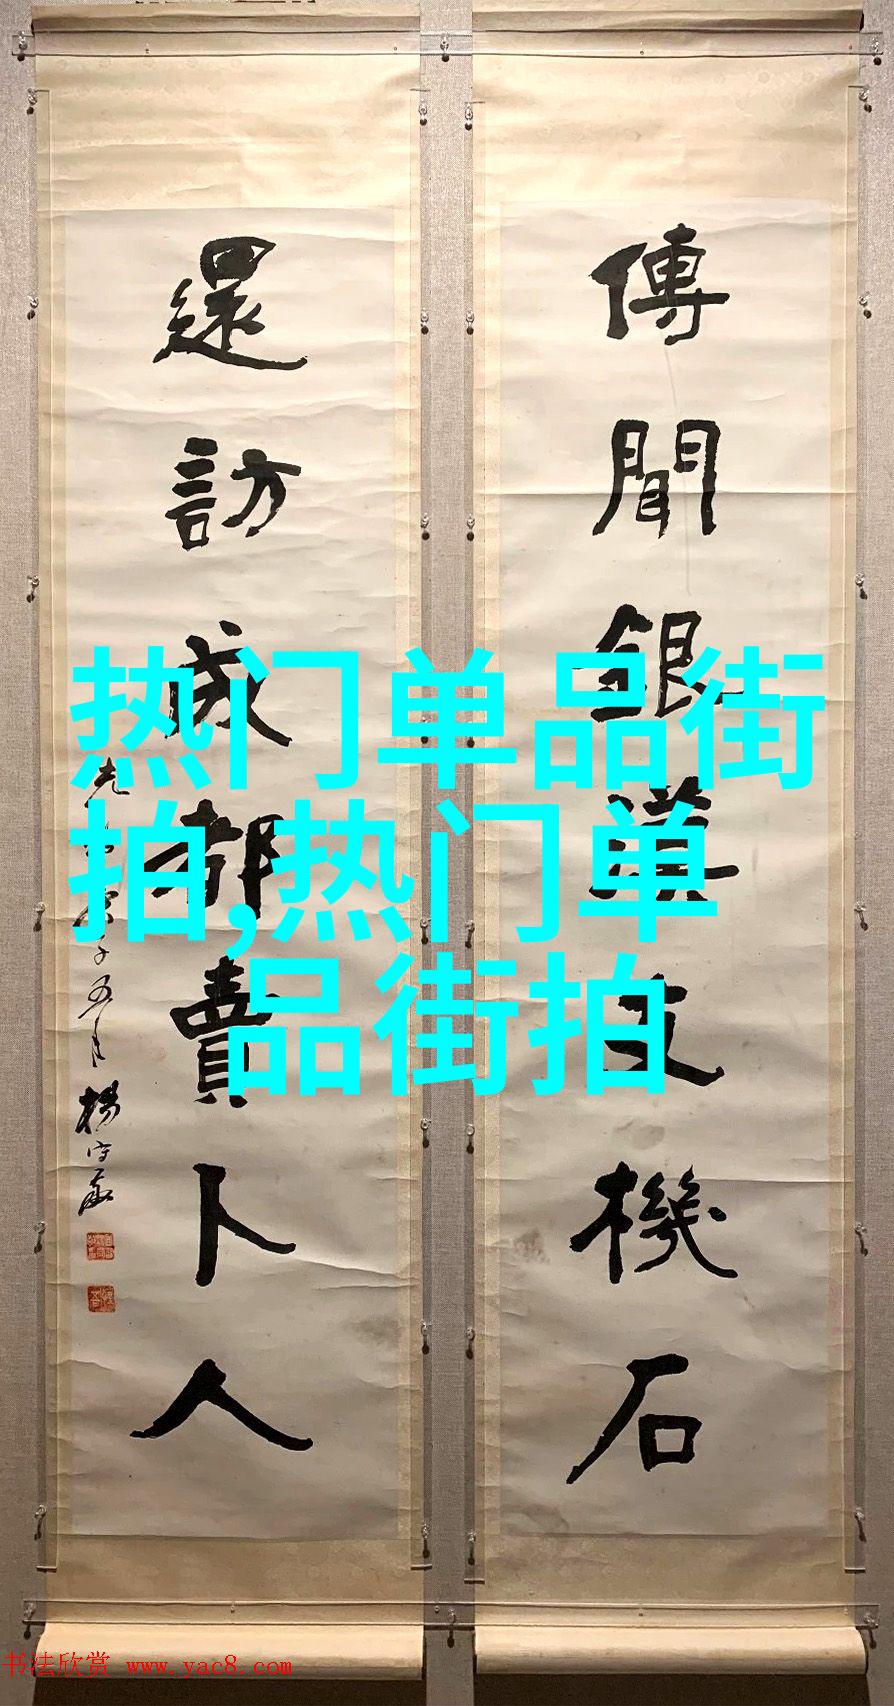 傳聞銀漢支機石
還訪成都賣卜人
光緒庚子五月 楊守敬
热门单品街
拍,热门单
品街拍
书法欣赏 www.yac8.com